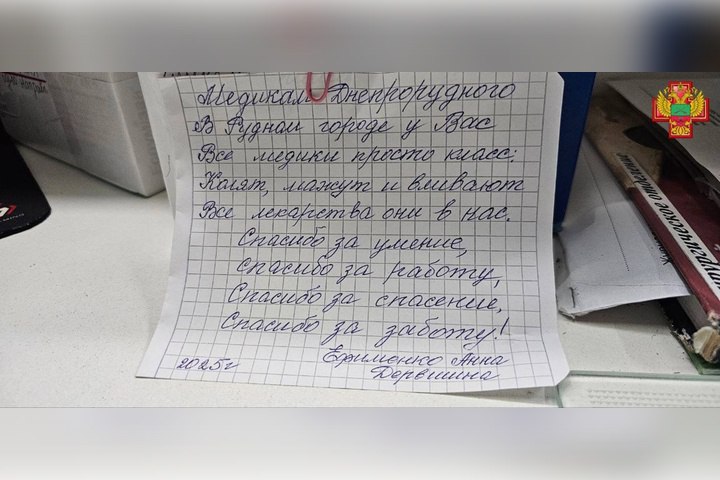 Медикам Днепрорудного
В Рудном городе у Вас
Все медики просто класс:
Колят, мажут и вливают
Все лекарства они в нас.
Спасибо за умение,
Спасибо за работу,
Спасибо за спасение,
Спасибо за заботу!
Ефименко Анна
2025г Дервишина